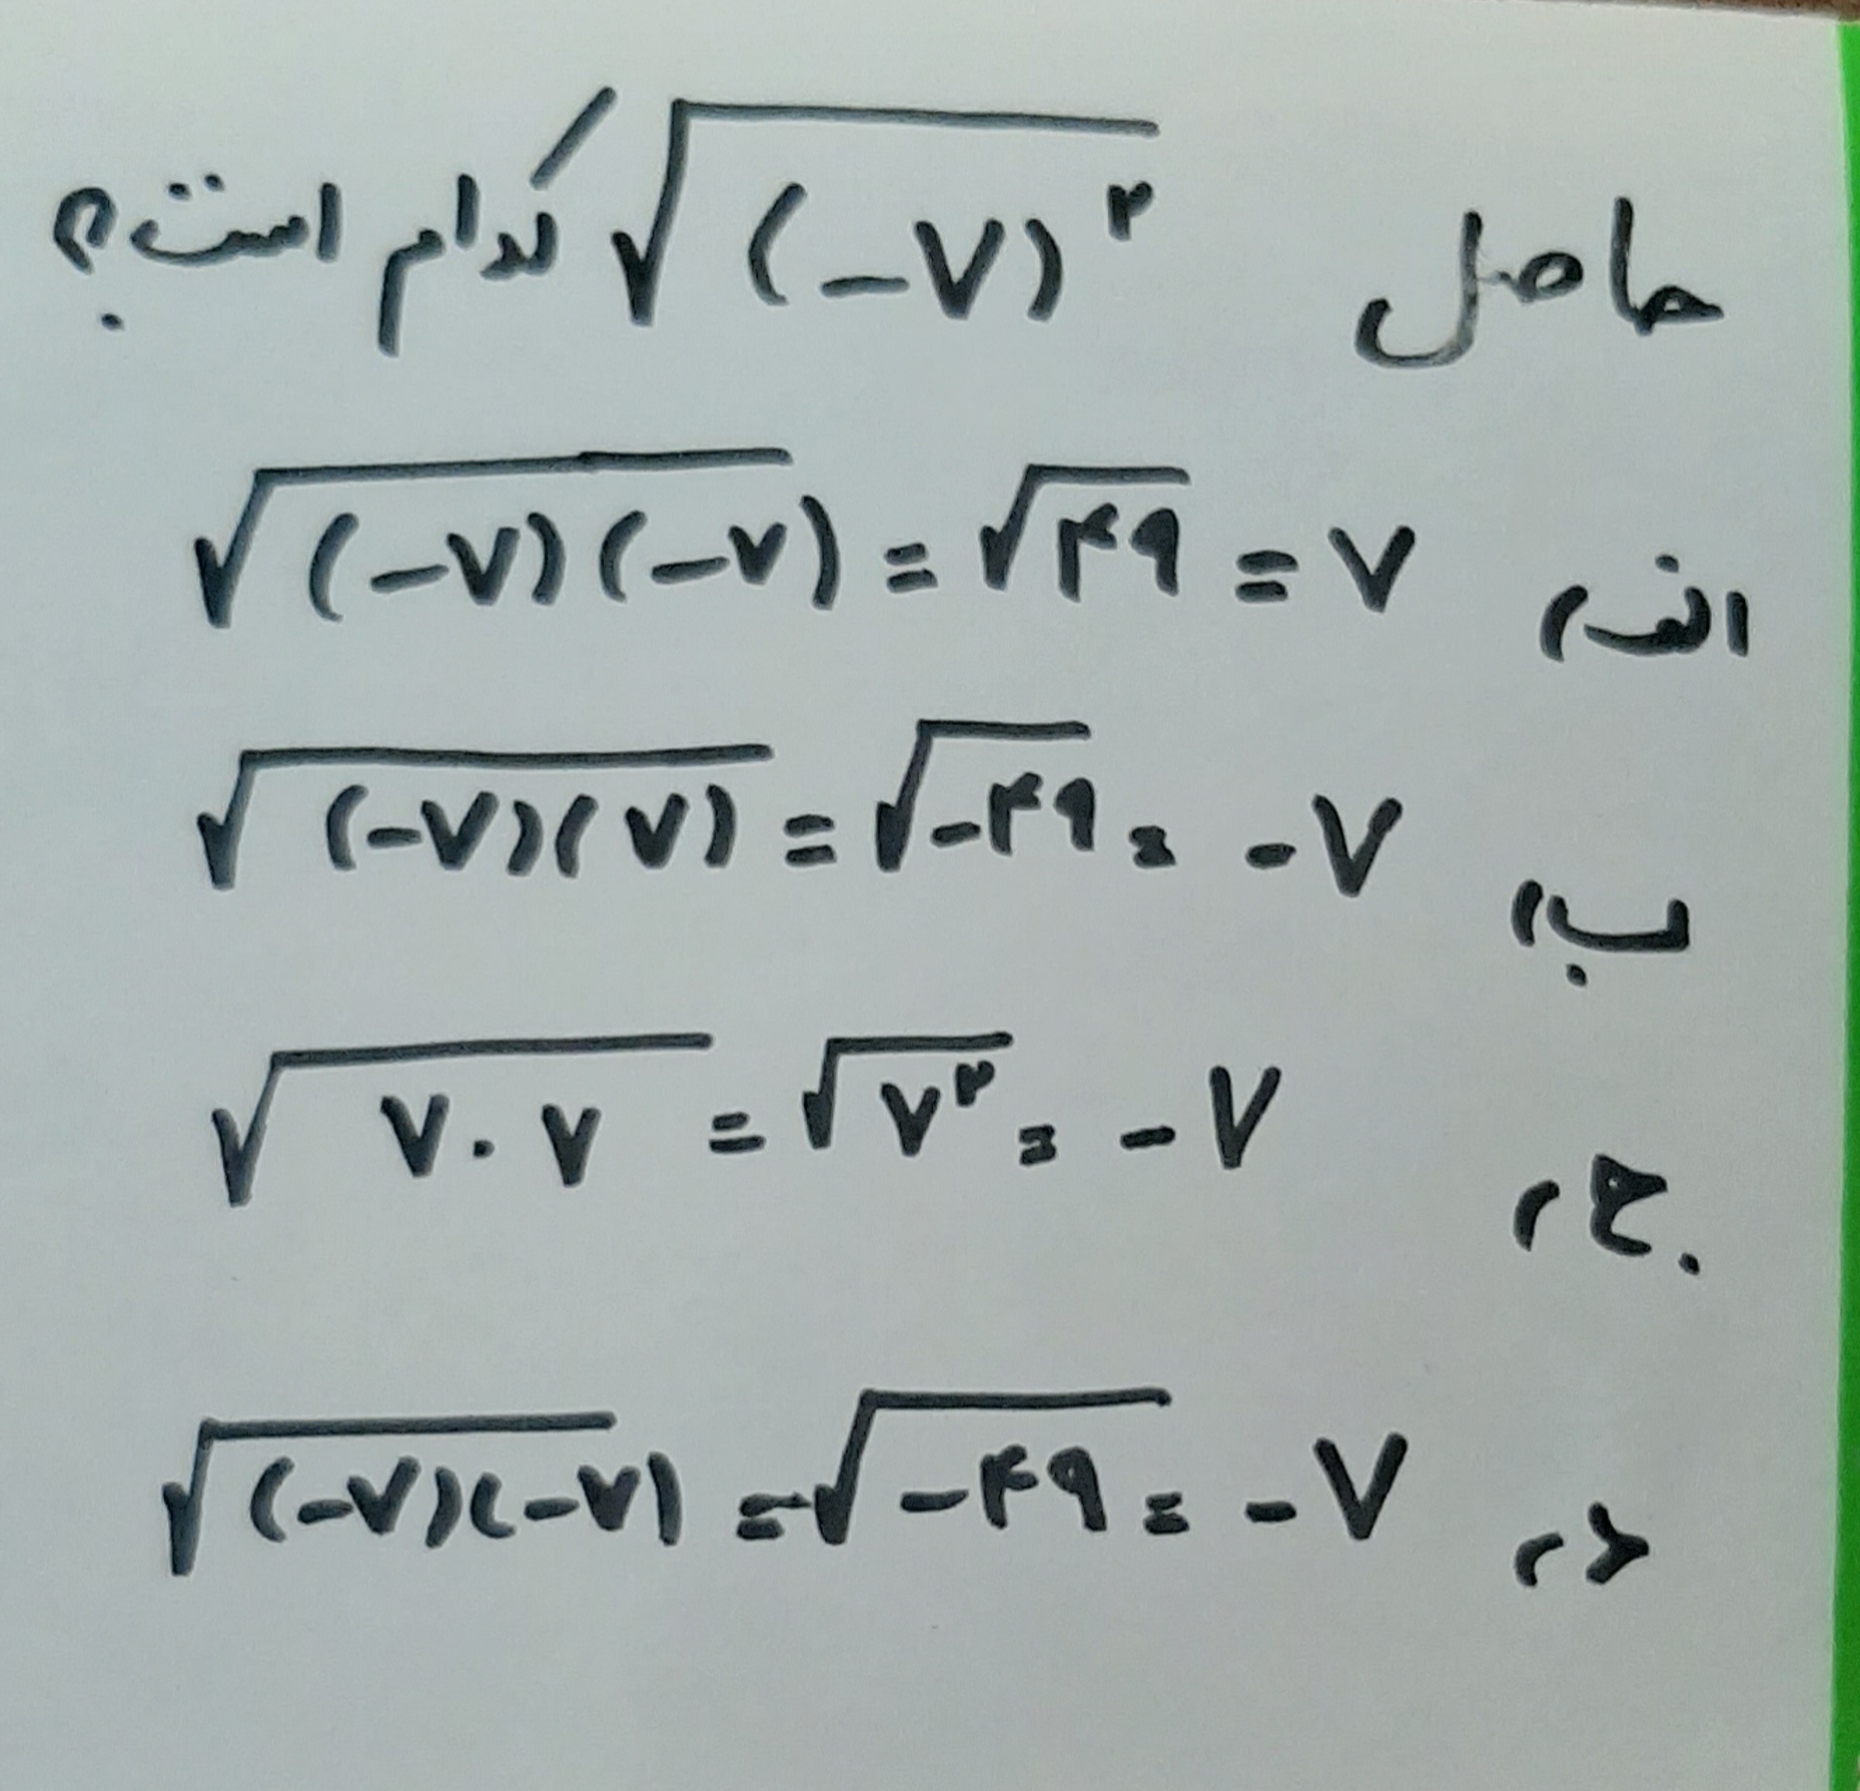 حاصل √(-۷)^۲ کدام است؟
الف) √(-۷)(-۷) = √۴۹ = ۷
ب) √(-۷)(۷) = √-۴۹ = -۷
ج) √۷.۷ = √۷^۲ = -۷
د) √(-۷)(-۷) = √-۴۹ = -۷